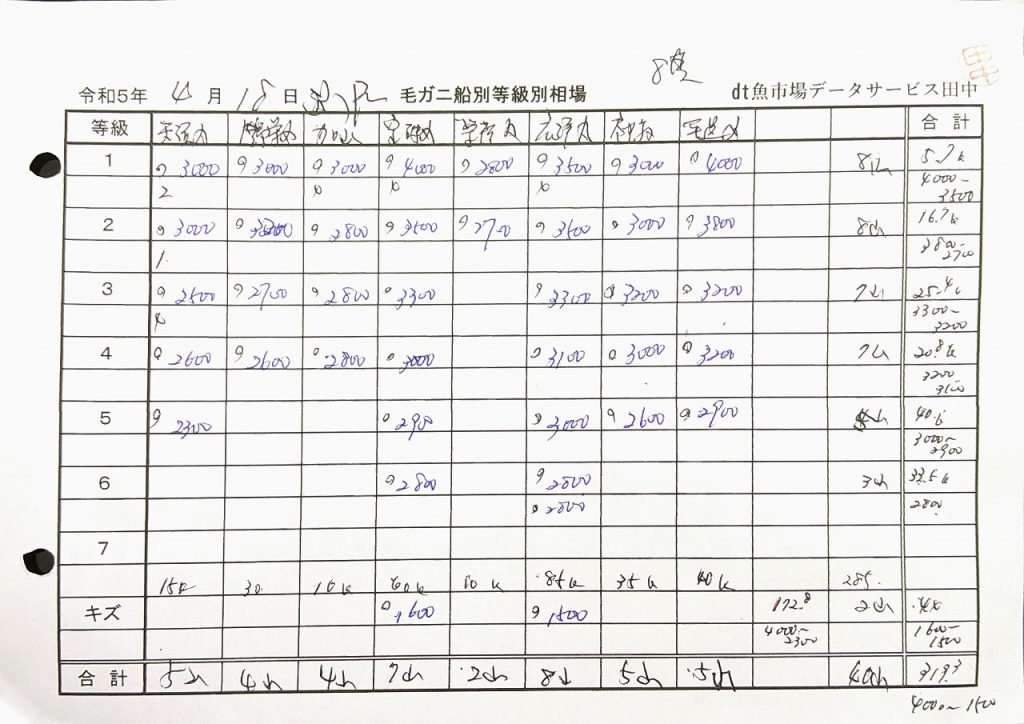 8隻
令和5年 4月18日 毛ガニ船別等級別相場 dt魚市場データサービス田中
等級 合計
1 3000 3000 3000 4000 2800 3500 3000 4000 8山 5.7k
2 4000~3500
2 3000 2800 3500 2700 3500 3000 3800 8山 16.7k
1 3800~2700
3 2500 2700 2800 3300 3300 3200 3200 7山 25.4k
3300~3200
4 2600 2600 2800 3000 3100 3000 3200 7山 20.8k
3200~3100
5 2300 2900 3000 2600 2900 山 40.6
3000~2900
6 2800 2800 3山 33.5k
2800 2800
7
15k 30 10k 60k 10k 85k 35k 40k 285.
キズ 1600 1500 172.8 2山
4000~2300 1600~1500
合計 5山 4山 4山 7山 2山 8山 5山 5山 40山 319.3
4000~1500